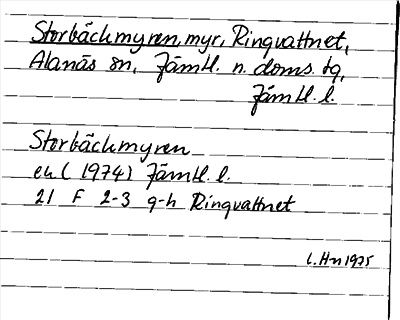 Storbäckmyren, myr, Ringvattnet,
Alanäs sn, Jämtl. n. doms. tg,
Jämtl. l.
Storbäckmyren
ek (1974) Jämtl. l.
21 F 2-3 g-h Ringvattnet
L. Hn 1975